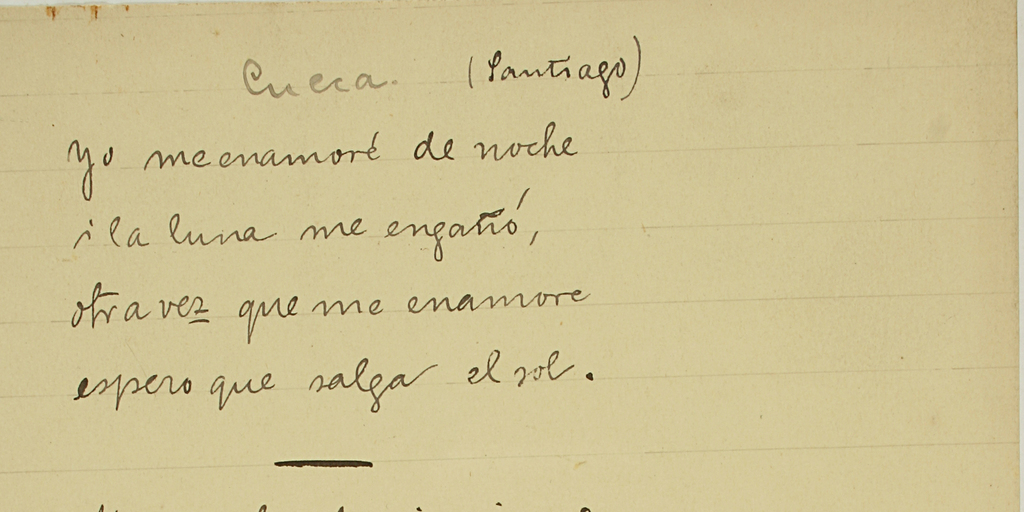 Cueca. (Santiago)
Yo me enamoré de noche
i la luna me engañó,
otra vez que me enamore
espero que salga el sol.